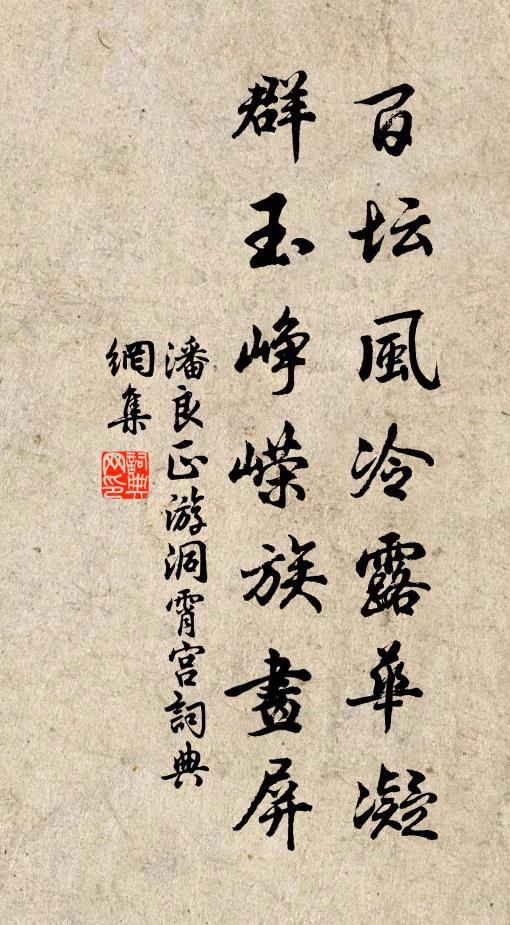 百坛風冷露華凝
群玉峥嵘族畫屏
潘良正游洞霄宫詞典
網集
詞典網印